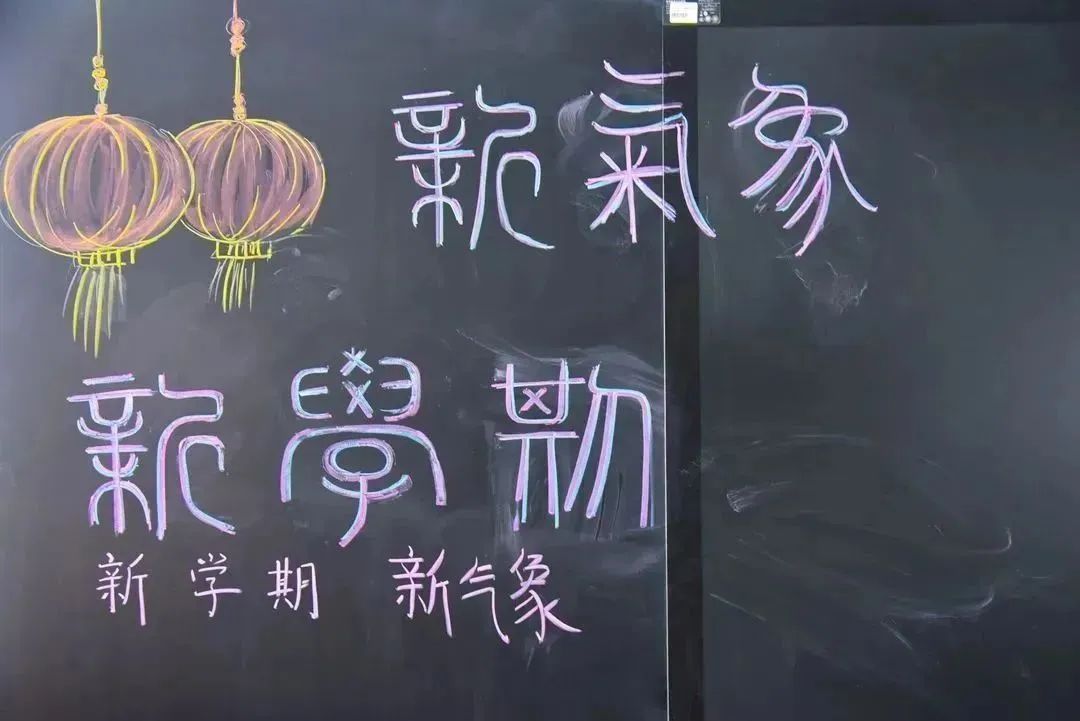 新氣象
新學期
新学期 新气象